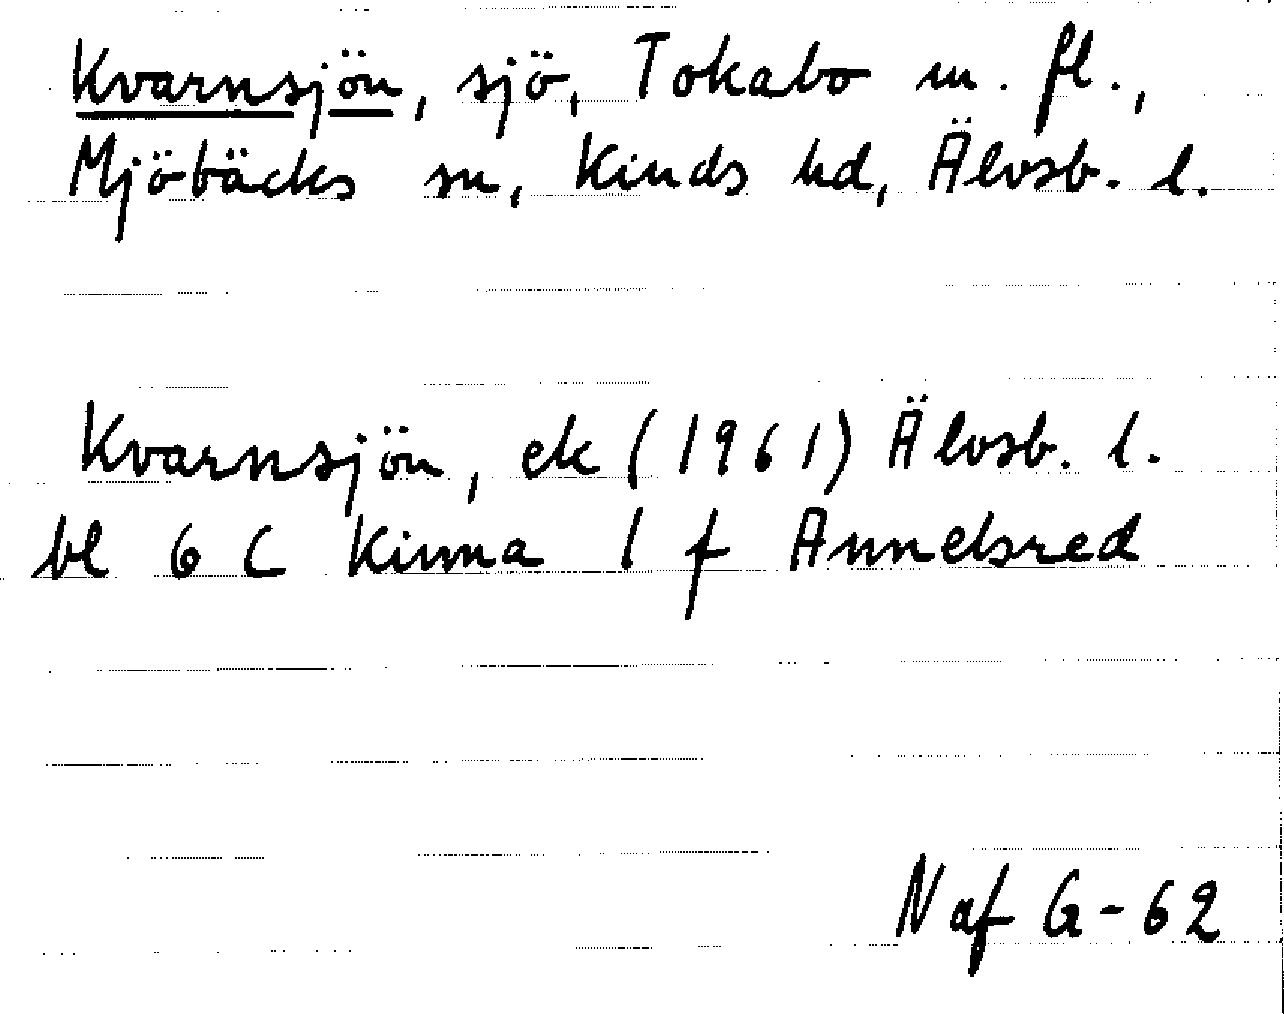 Kvarnsjön, sjö, Tokabo m. fl.,
Mjöbäcks sn, Kinds hd, Älvsb. l.
Kvarnsjön, ek (1961) Älvsb. l.
bl 6 C Kinna 1 f Annelsred
N af G-62